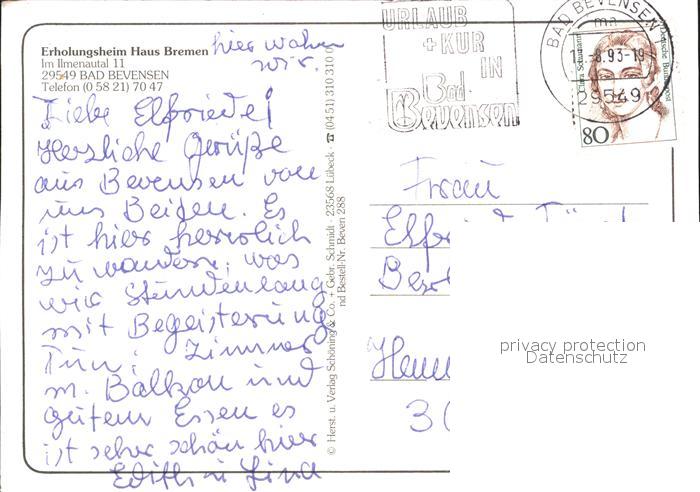 Erholungsheim Haus Bremen
Im Ilmenautal 11
29549 BAD BEVENSEN
Telefon (0 58 21) 70 47
hier wohnen
wir.
Liebe Elfriede!
Herzliche Grüße
aus Bevensen von
uns Beiden. Es
ist hier herrlich
zu wandern, was
wir Stundenlang
mit Begeisterung
Tun. Zimmer
m. Balkon und
gutem Essen es
ist sehr schön hier
Edith u
© Herst. u. Verlag Schöning & Co. + Gebr. Schmidt · 23568 Lübeck · ☎ (04 51) 310 310
nd Bestell-Nr. Beven 288
URLAUB
+ KUR
IN
Bad
Bevensen
BAD BEVENSEN
ma
.8.93-19
29549
Clara Schumann
Deutsche Bundespost
80
Frau
privacy protection
Datenschutz